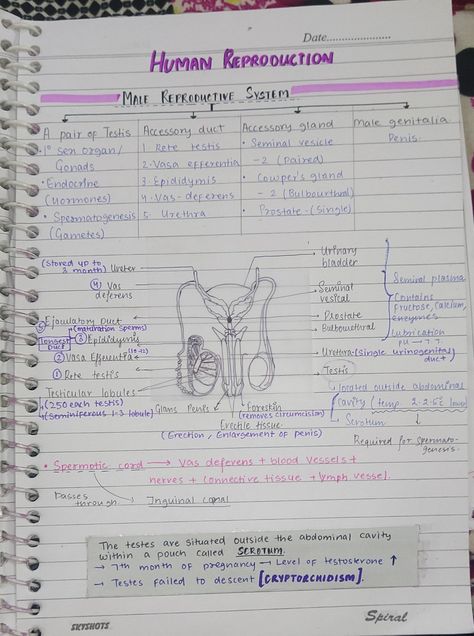 Date....................
HUMAN REPRODUCTION
MALE REPRODUCTIVE SYSTEM
A pair of Testis
• 1° sex organ/
Gonads
• Endocrine
(Hormones)
• Spermatogenesis
(Gametes)
Accessory duct
1. Rete testis
2. Vasa efferentia
3. Epididymis
4. Vas-deferens
5. Urethra
Accessory gland
• Seminal vesicle
-2 (Paired)
• Cowper's gland
-2 (Bulbourthral)
• Prostate-(Single)
Male genitalia
Penis.
(Stored up to
2 month) Ureter
④ Vas
deferens
⑤ Ejaculatory Duct
(Maturation sperms)
Longest Duct ③ Epididymis
(10-12)
② Vasa Efferentia
① Rete testis
Testicular lobules
(250 each testis)
(Seminiferous 1-3 lobule)
Glans Penis
Foreskin
(removes circumcision)
Erectile tissue
(Erection / Enlargement of penis)
Urinary
bladder
Seminal
vesical
Prostate
Bulbourethral
Urethra (Single urinogenital
duct)
Testis
Located outside abdominal
cavity (temp. 2-2.5°C lower)
Scrotum
Required for spermato-
genesis.
Seminal plasma
Contains
fructose, Calcium,
enzymes
Lubrication
PH → 7.7
• Spermatic cord → Vas deferens + blood vessels +
nerves + Connective tissue + lymph vessel.
Passes
through
Inguinal canal
The testes are situated outside the abdominal cavity
within a pouch called SCROTUM.
→ 7th month of pregnancy → Level of testosterone ↑
→ Testes failed to descent [CRYPTORCHIDISM].
SKYSHOTS
Spiral